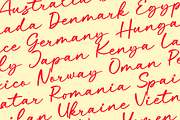 Australia
nada Denmark Egyp
ce Germany Hunga
ly Japan Kenya La
xico Norway Oman Pe
atar Romania Spai
Ukraine Vietn